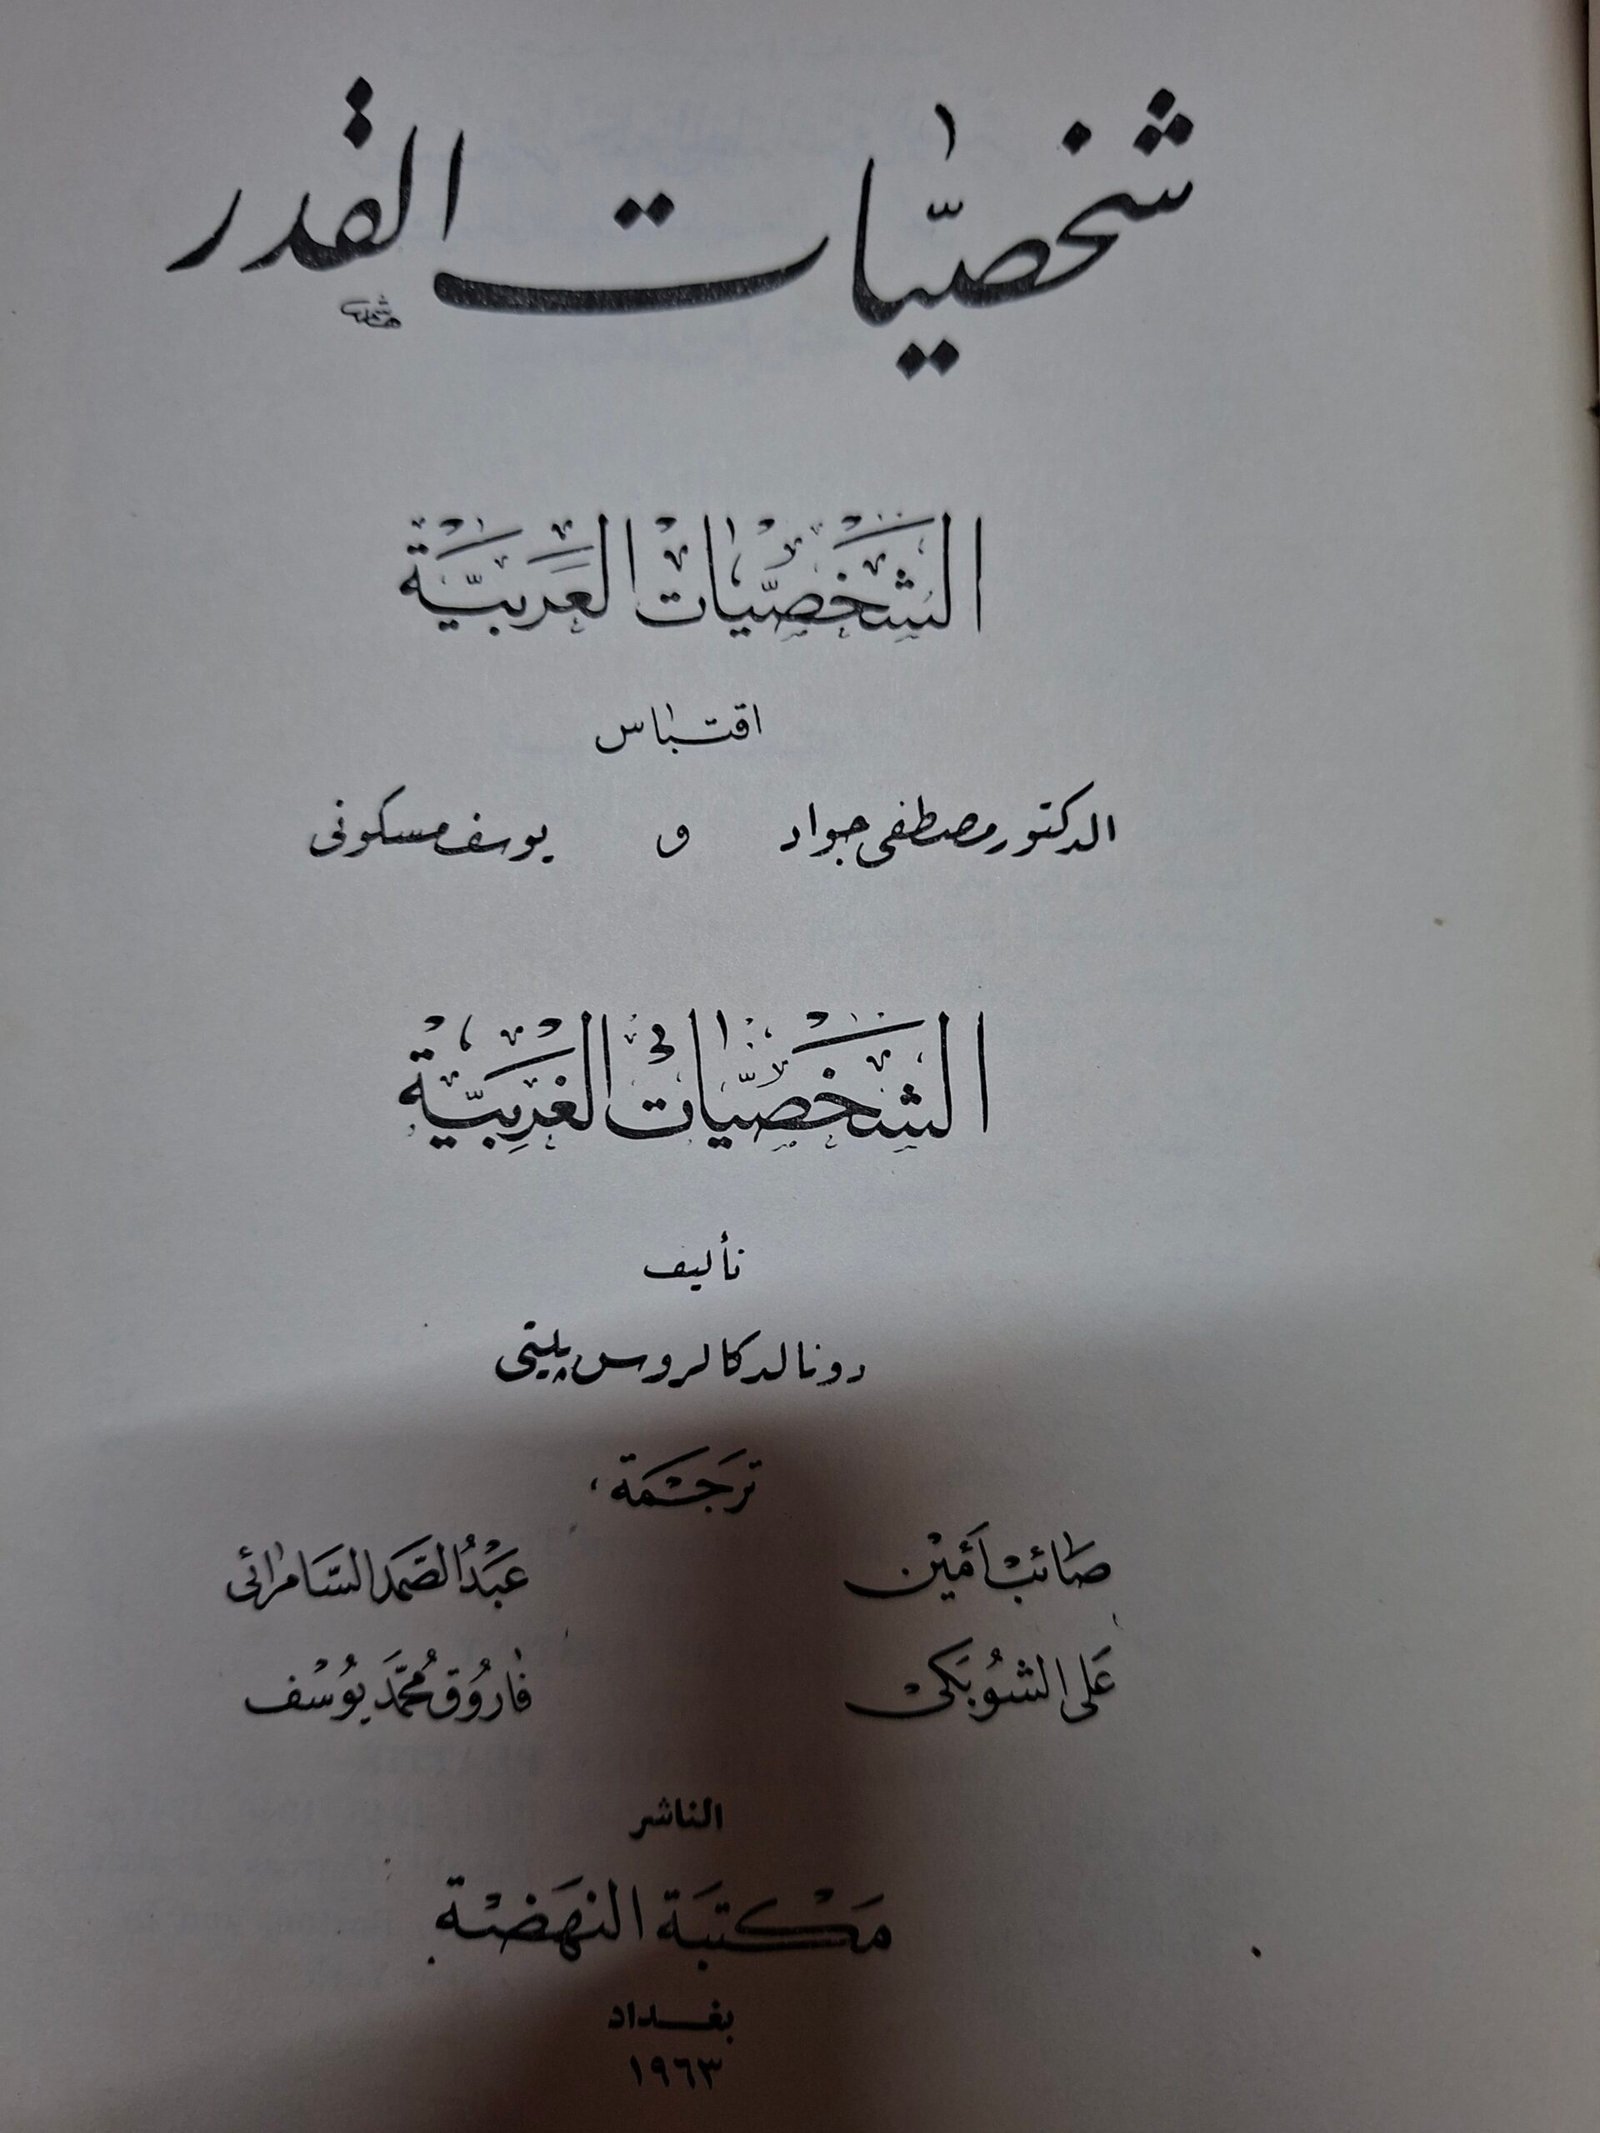 شخصيّات القدر
الشَّخصيّات العَربيَّة
اقتباس
الدكتور مصطفى جواد و يوسف مسكوني
الشَّخصيّات الغَربيَّة
تأليف
دونالد كالروس پيتي
ترجَمة
صَائبْ أمَينْ عَبْدُ الصَّمَد السَّامرائي
عَلي الشوُبَكيْ فاروُق مُحمَّد يوُسْف
الناشر
مَكتبَة النهَضة
بغداد
١٩٦٣